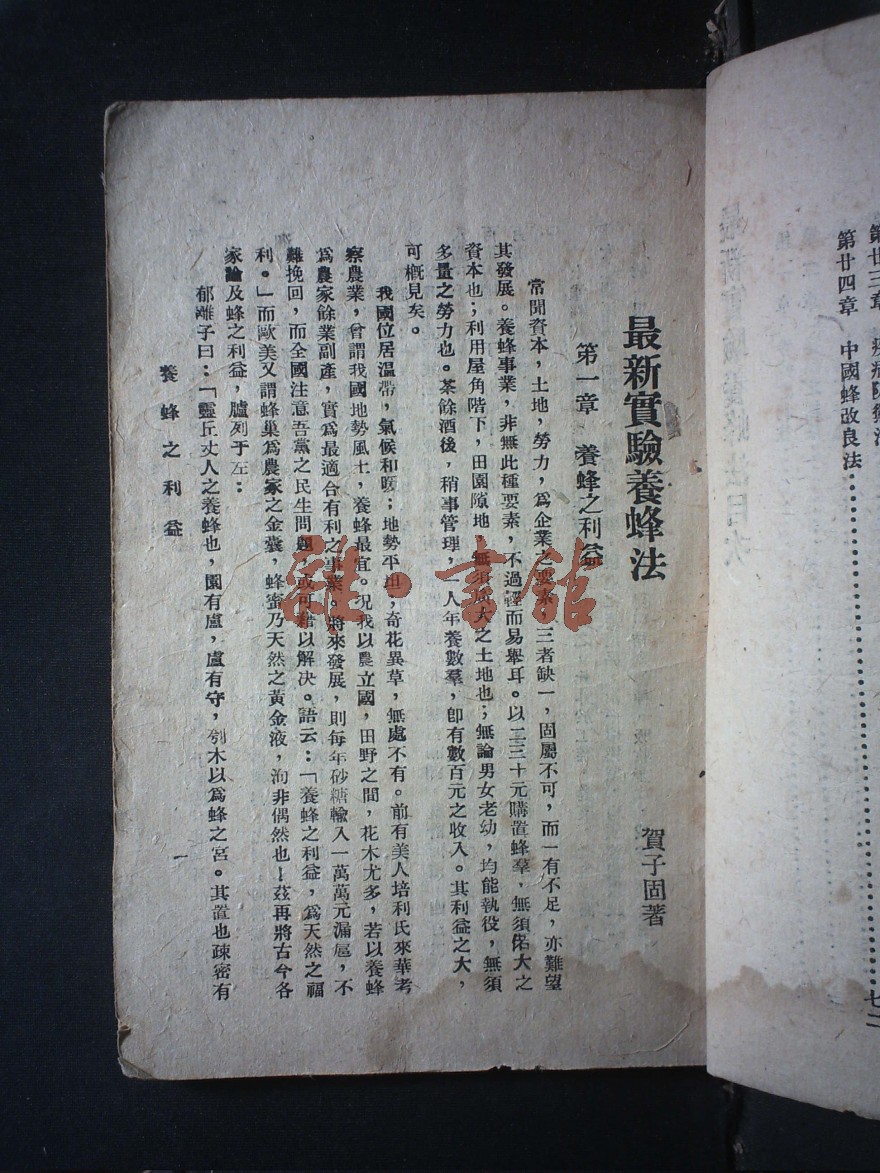 第廿三章
第廿四章 中國蜂改良法
七二
最新實驗養蜂法
賀子固著
第一章 養蜂之利益
常聞資本,土地,勞力,爲企業之要素,三者缺一,固屬不可,而一有不足,亦難望
其發展。養蜂事業,非無此種要素,不過輕而易舉耳。以二三十元購置蜂羣,無須佑大之
資本也;利用屋角階下,田園隙地,無須佑大之土地也;無論男女老幼,均能執役,無須
多量之勞力也。茶餘酒後,稍事管理,一人年養數羣,卽有數百元之收入。其利益之大,
可概見矣。
我國位居溫帶,氣候和暖;地勢平坦,奇花異草,無處不有。前有美人培利氏來華考
察農業,曾謂我國地勢風土,養蜂最宜。况我以農立國,田野之間,花木尤多,若以養蜂
爲農家餘業副產,實爲最適合有利之事業。將來發展,則每年砂糖輸入一萬萬元漏巵,不
難挽回,而全國注意吾黨之民生問題,或可藉以解決。語云:「養蜂之利益,爲天然之福
利。」而歐美又謂蜂巢爲農家之金囊,蜂蜜乃天然之黃金液,洵非偶然也!茲再將古今各
家論及蜂之利益,臚列于左:
郁離子曰:「靈丘丈人之養蜂也,園有盧,盧有守,刳木以爲蜂之宮。其置也疎密有
養蜂之利益
一
雜·書館